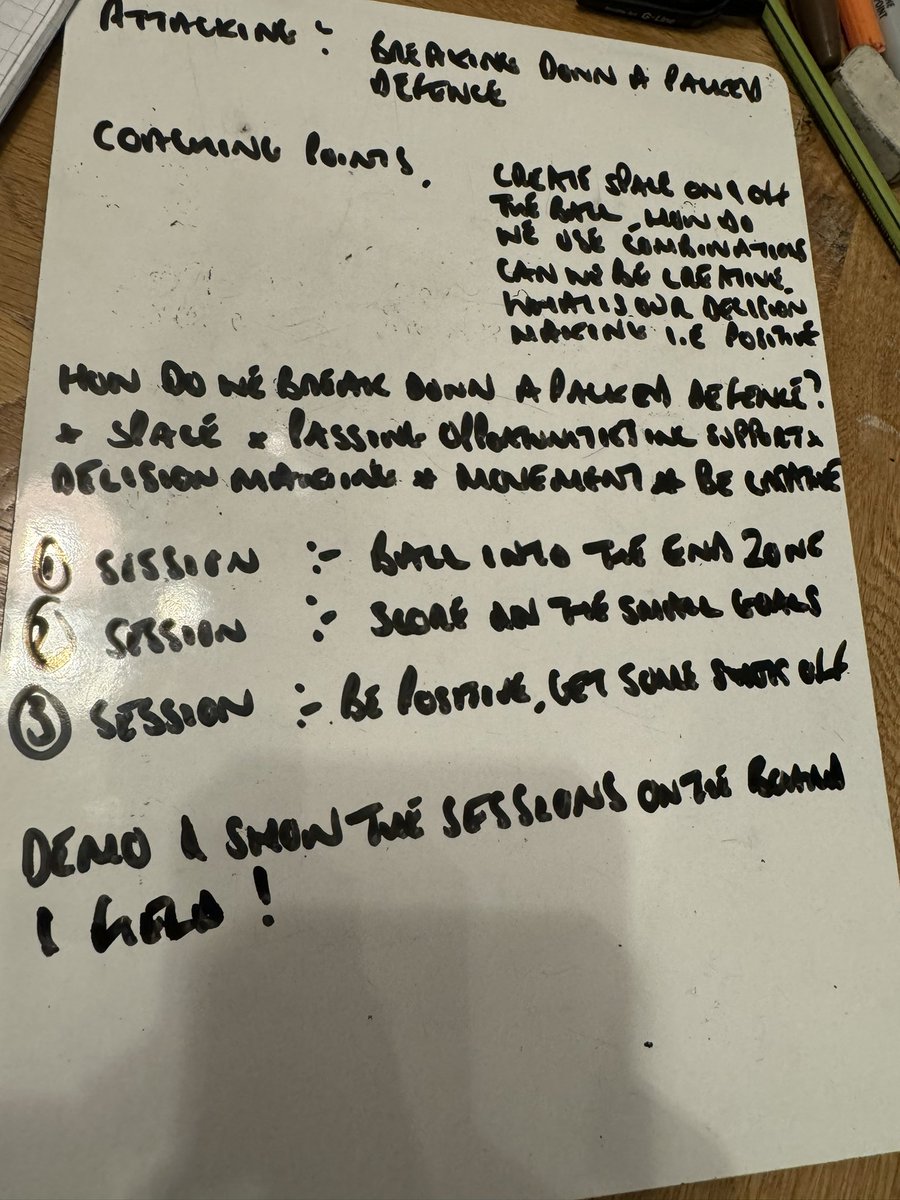 ATTACKING : BREAKING DOWN A PACKED
DEFENCE
COACHING POINTS.
CREATE SPACE ON & OFF
THE BALL, HOW DO
WE USE COMBINATIONS
CAN WE BE CREATIVE.
WHAT IS OUR DECISION
MAKING I.E POSITIVE
HOW DO WE BREAK DOWN A PACKED DEFENCE?
* SPACE * PASSING OPPORTUNITIES INC SUPPORT *
DECISION MAKING * MOVEMENT * BE CREATIVE
① SESSION :- BALL INTO THE END ZONE
② SESSION :- SCORE IN THE SMALL GOALS
③ SESSION :- BE POSITIVE, GET SOME SHOTS OFF
DEMO & SHOW THE SESSIONS ON THE BOARD
& FIELD!